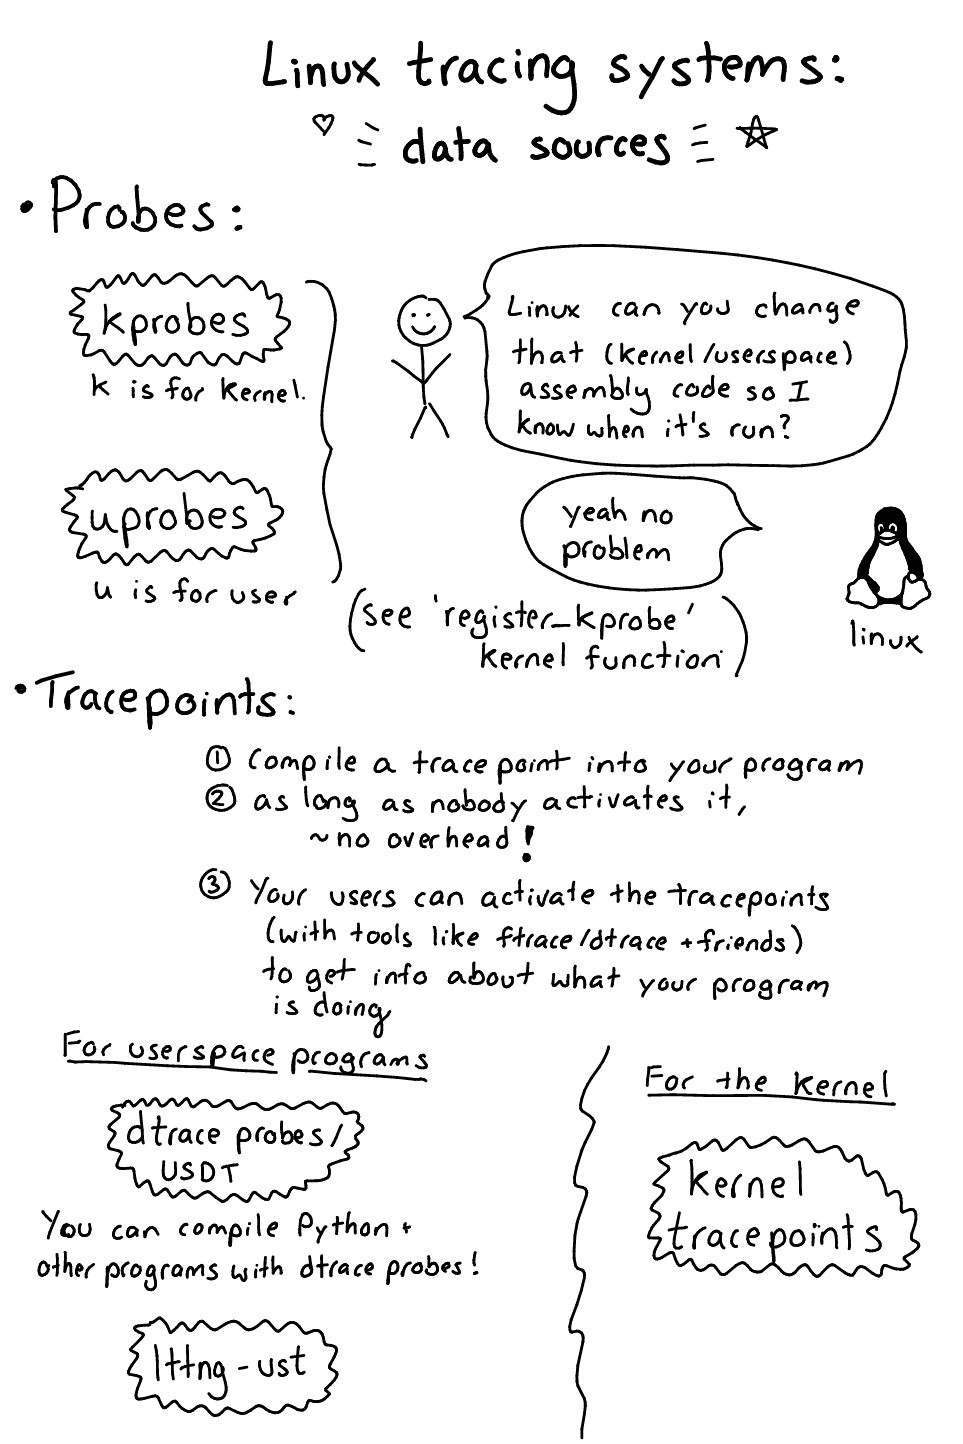 Linux tracing systems:
data sources
• Probes:
kprobes
k is for kernel.
uprobes
u is for user
Linux can you change
that (kernel/userspace)
assembly code so I
know when it's run?
yeah no
problem
linux
(see 'register_kprobe'
kernel function)
• Tracepoints:
① Compile a tracepoint into your program
② as long as nobody activates it,
~no overhead!
③ Your users can activate the tracepoints
(with tools like ftrace/dtrace + friends)
to get info about what your program
is doing
For userspace programs
dtrace probes/
USDT
You can compile Python +
other programs with dtrace probes!
lttng-ust
For the kernel
kernel
tracepoints